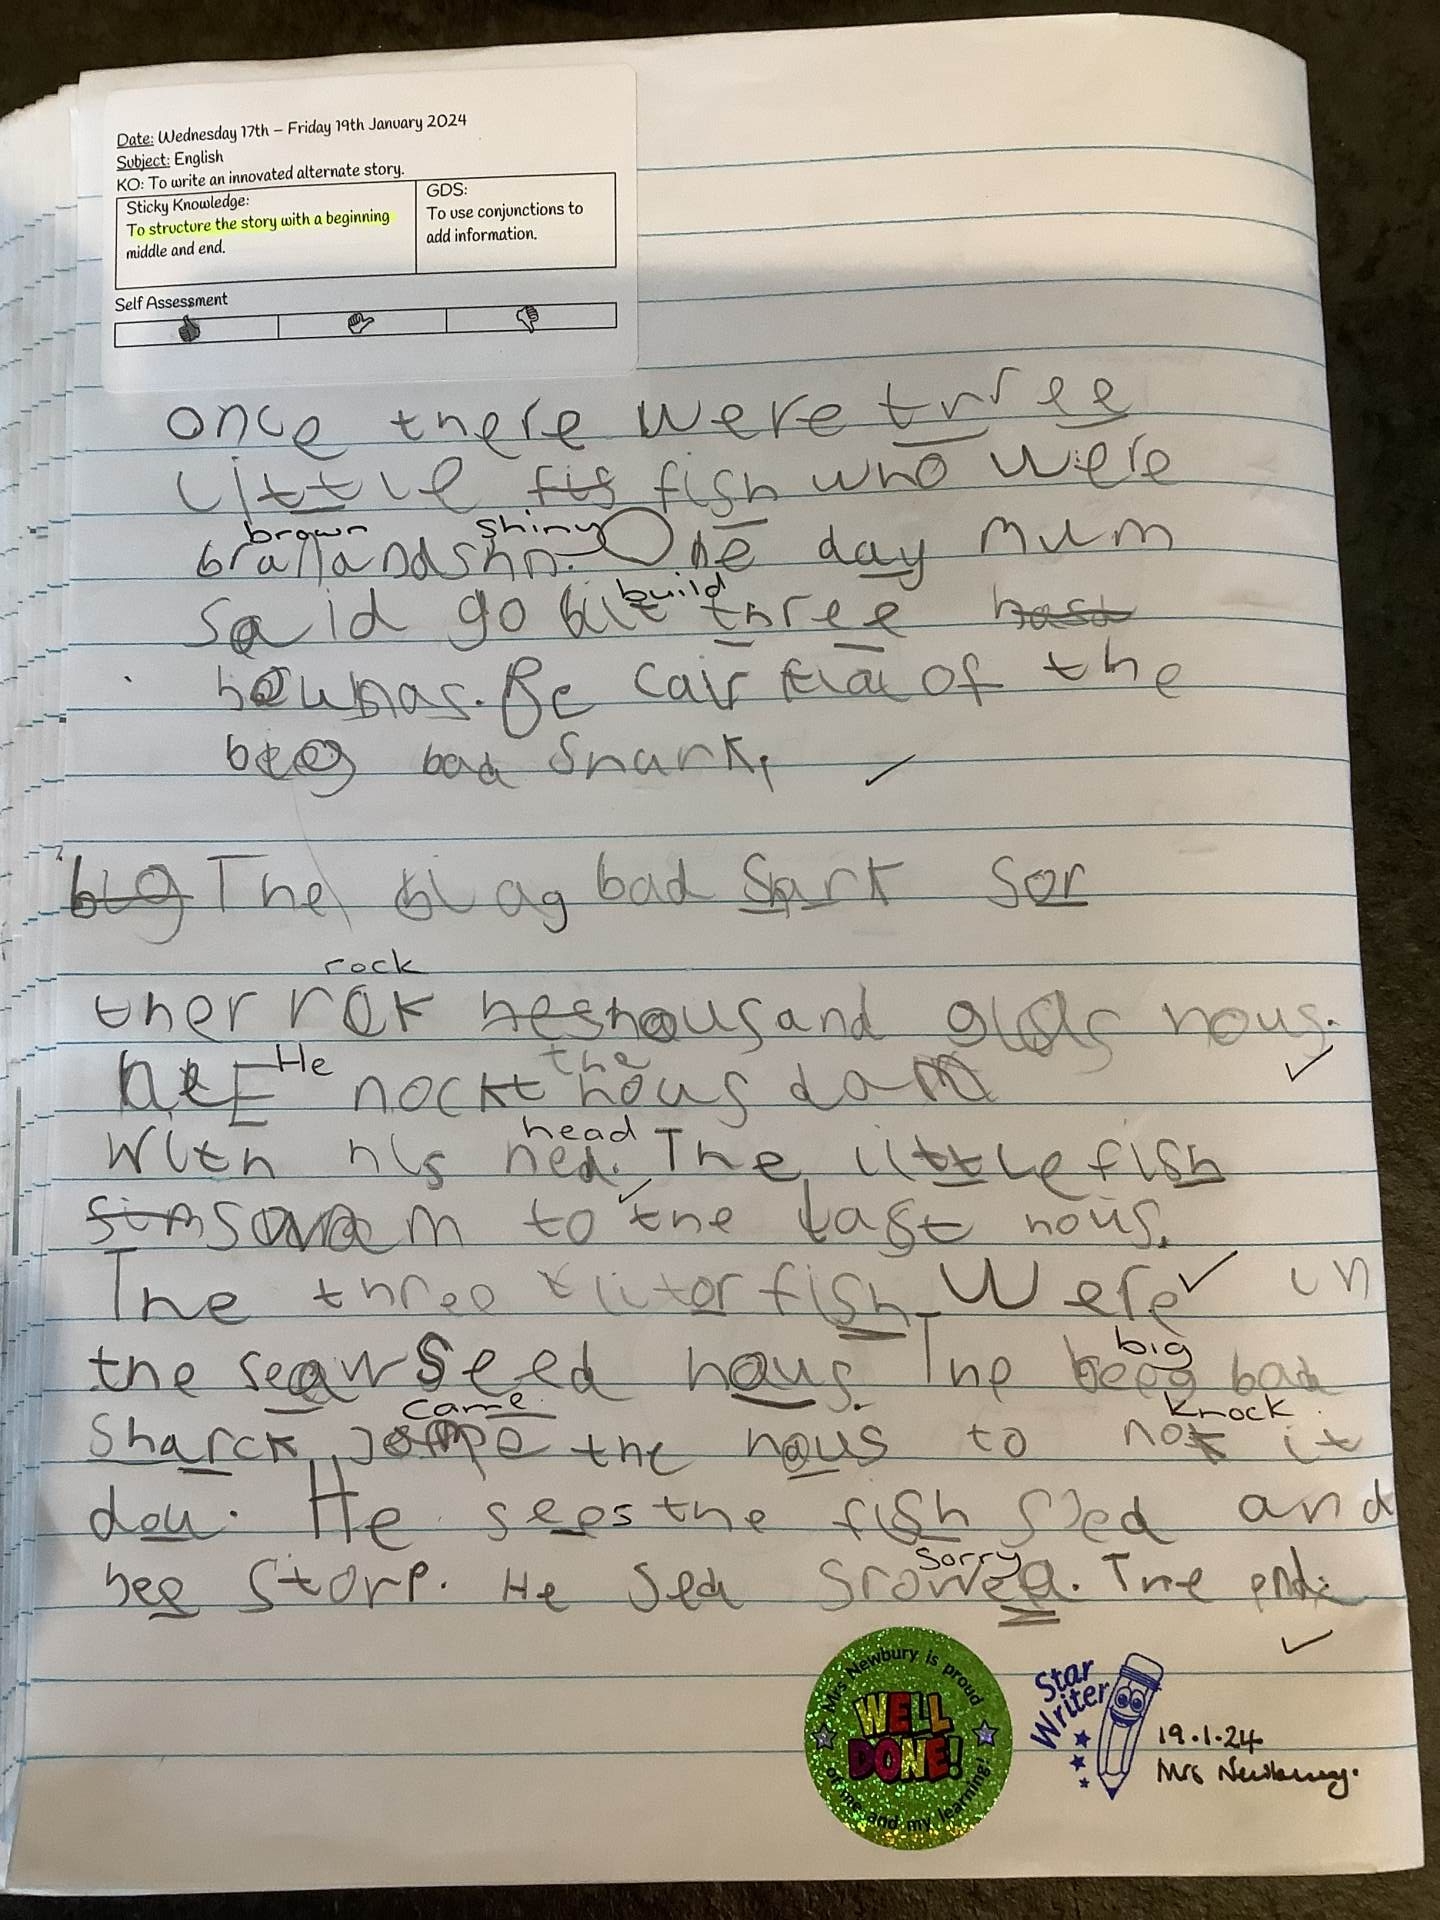 Date: Wednesday 17th – Friday 19th January 2024
Subject: English
KO: To write an innovated alternate story.
Sticky Knowledge:
To structure the story with a beginning
middle and end.
GDS:
To use conjunctions to
add information.
Self Assessment
once there were three
little fis fish who were
brown shiny
One day mum
build
said go three
Be of the
bad shark.
big The bad shark sor
rock
ther rok hes hous and hous.
He the
nockt hous
head
with his hed. The little fish
sim to the last hous.
The three fish were in
the seed haus. The big bad
came knock
sharck the haus to not it
dou. He sees the fish sed and
sorry
beg storp. He sed The end
Mrs Newbury is proud
WELL
DONE!
of me and my learning!
Star
Writer
19.1.24
Mrs Newbury.